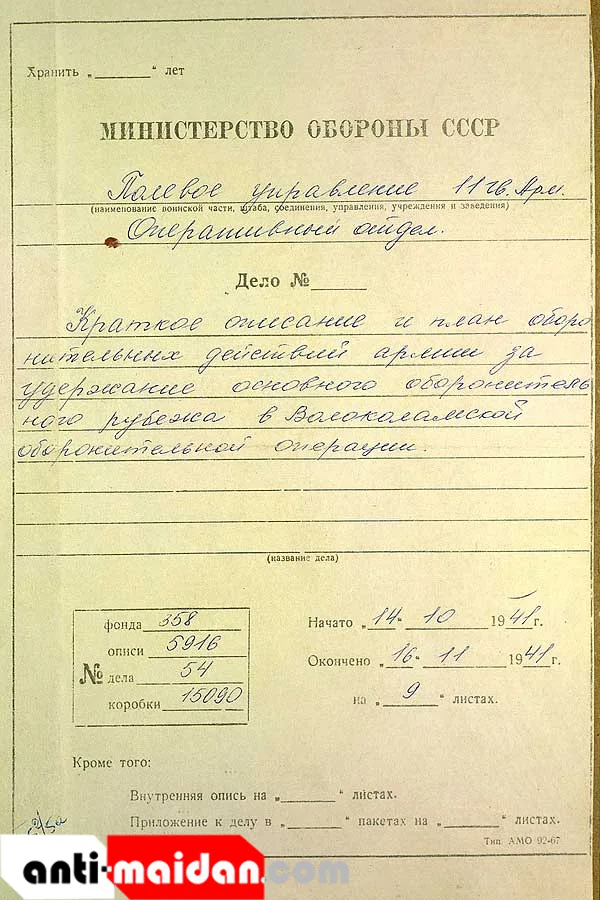 Хранить „ ______ “ лет
МИНИСТЕРСТВО ОБОРОНЫ СССР
Полевое управление 11 гв. Арм.
(наименование воинской части, штаба, соединения, управления, учреждения и заведения)
Оперативный отдел.
Дело № ______
Краткое описание и план оборо
нительных действий армии за
удержание основного оборонитель
ного рубежа в Волоколамской
оборонительной операции.
(название дела)
фонда 358
описи 5916
№ дела 54
коробки 15090
Начато „14“ 10 1941 г.
Окончено „16“ 11 1941 г.
на „ 9 “ листах.
Кроме того:
Внутренняя опись на „ ______ “ листах.
Приложение к делу в „ ______ “ пакетах на „ ______ “ листах.
Тип. АМО 92-67
anti-maidan.com